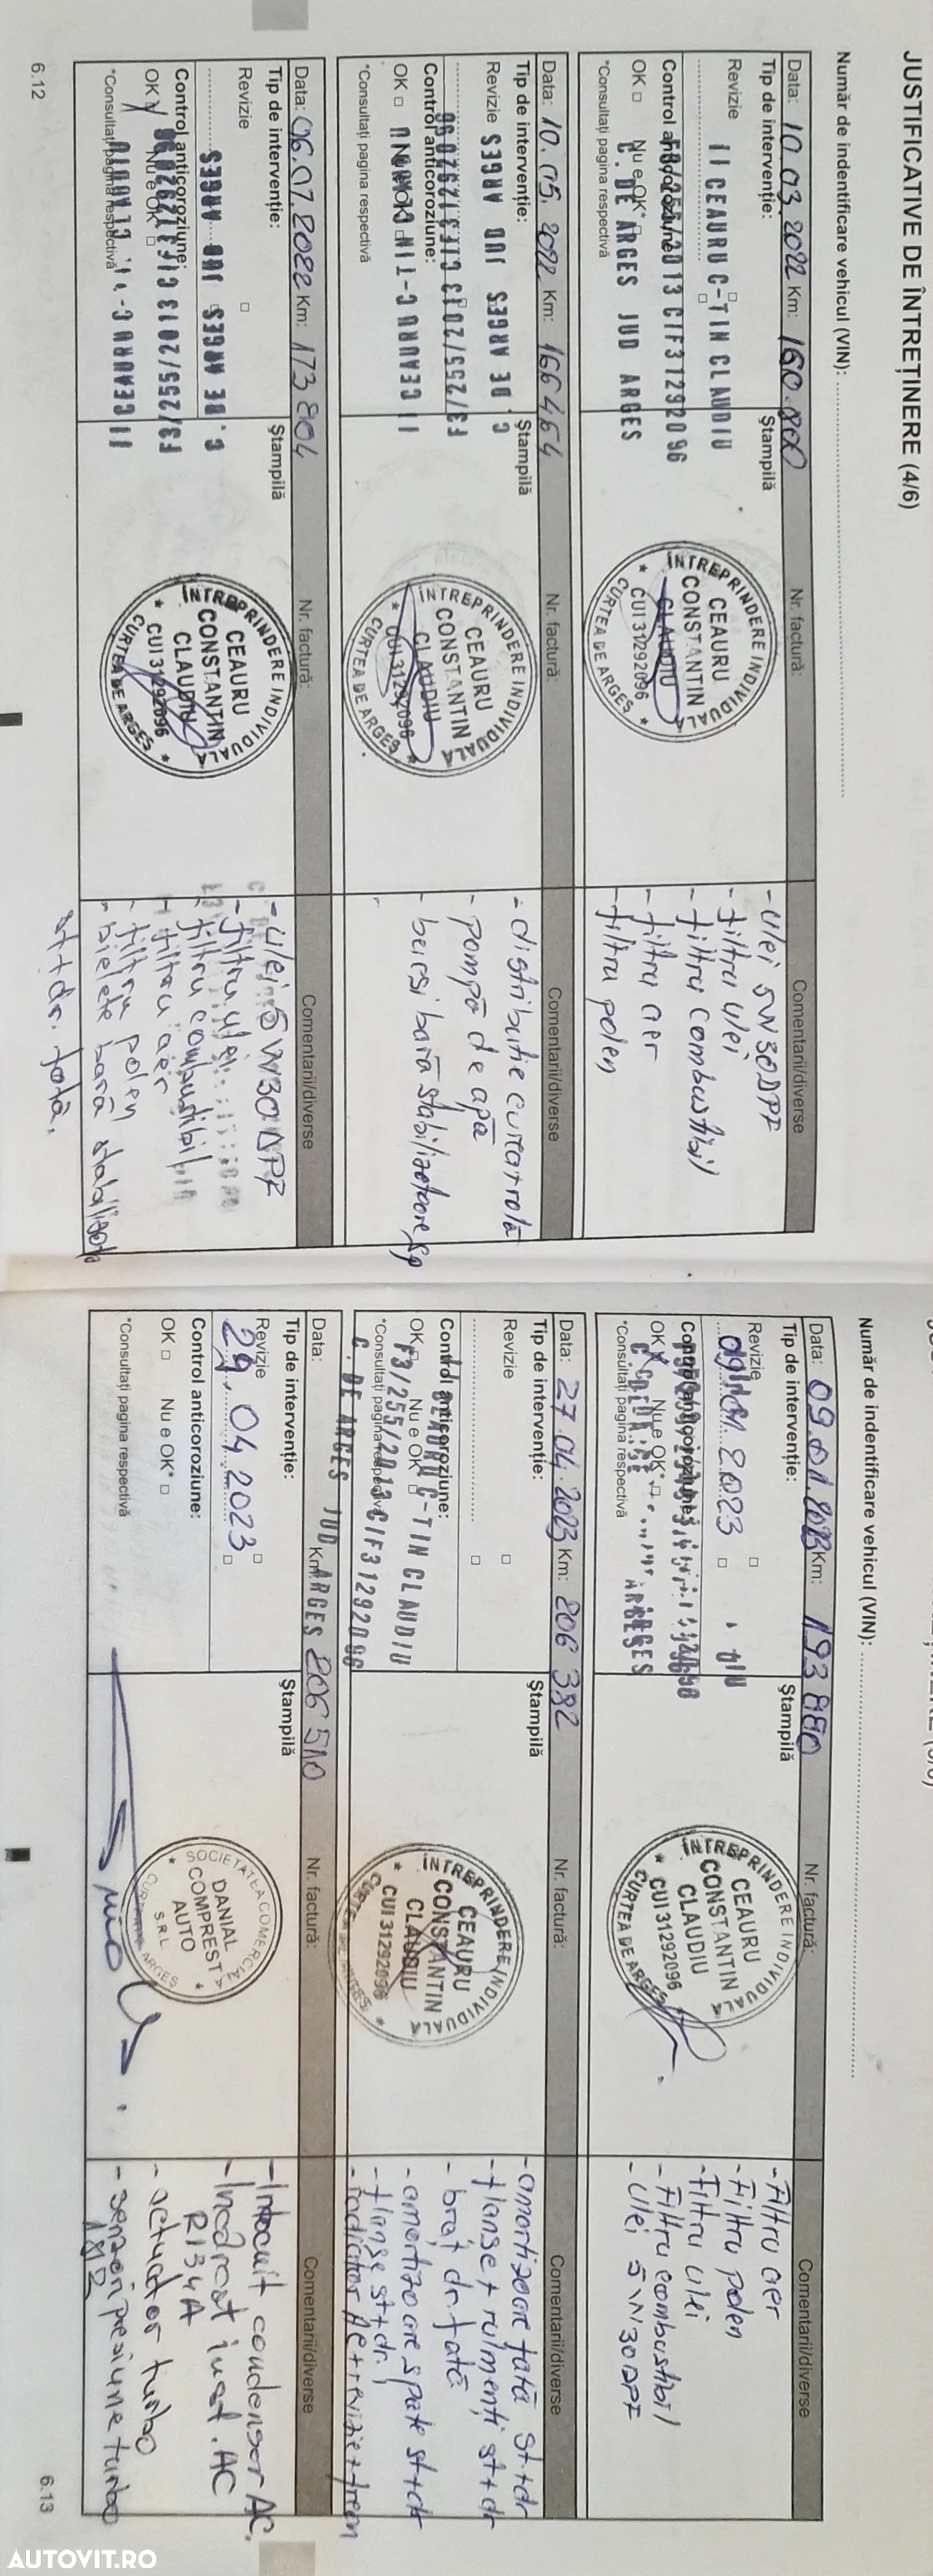 JUSTIFICATIVE DE ÎNTREȚINERE (4/6)
Număr de indentificare vehicul (VIN):
Data: 10.03.2022 Km: 160.800 Nr. factură: Comentarii/diverse
Tip de intervenție: Ștampilă
Revizie
II CEAURU C-TIN CLAUDIU
F3/255/2013 CIF31292096
C. DE ARGES JUD ARGES
Control anticoroziune:
OK Nu e OK*
*Consultați pagina respectivă
ÎNTREPRINDERE INDIVIDUALĂ
CEAURU
CONSTANTIN
CLAUDIU
CUI 31292096
CURTEA DE ARGEȘ
- Ulei 5W30DPF
- filtru ulei
- filtru combustibil
- filtru aer
- filtru polen
Data: 10.05.2022 Km: 166464 Nr. factură: Comentarii/diverse
Tip de intervenție: Ștampilă
Revizie
C. DE ARGES JUD ARGES
F3/255/2013 CIF31292096
II CEAURU C-TIN
Control anticoroziune:
OK Nu e OK*
*Consultați pagina respectivă
ÎNTREPRINDERE INDIVIDUALĂ
CEAURU
CONSTANTIN
CLAUDIU
CUI 31292096
CURTEA DE ARGEȘ
- distributie
- pompă de apă
- bucsi bară stabilizatoare
Data: 06.07.2022 Km: 173804 Nr. factură:
Comentarii/diverse
Tip de intervenție: Ștampilă
Revizie
C. DE ARGES JUD ARGES
F3/255/2013 CIF31292096
II CEAURU C-
Control anticoroziune:
OK Nu e OK
*Consultați pagina respectivă
ÎNTREPRINDERE INDIVIDUALĂ
CEAURU
CONSTANTIN
CLAUDIU
CUI 31292096
CURTEA DE ARGEȘ
- Ulei 5W30DPF
- filtru ulei
- filtru combustibil
- filtru aer
- filtru polen
- bielete bară
st+dr. față.
6.12
Număr de indentificare vehicul (VIN):
Data: Km: Nr. factură: Comentarii/diverse
Tip de intervenție: Ștampilă
Revizie
2023
ARGES
OK Nu e OK*
*Consultați pagina respectivă
ÎNTREPRINDERE INDIVIDUALĂ
CEAURU
CONSTANTIN
CLAUDIU
CUI 31292096
CURTEA DE ARGEȘ
- Filtru aer
- Filtru polen
- Filtru ulei
- Filtru combustibil
- Ulei 5W30DPF
Data: 27.04.2023 Km: 206 382 Nr. factură: Comentarii/diverse
Tip de intervenție: Ștampilă
Revizie
Control anticoroziune:
CEAURU C-TIN CLAUDIU
F3/255/2013 CIF31292096
C. DE ARGES JUD ARGES
OK Nu e OK*
*Consultați pagina respectivă
ÎNTREPRINDERE INDIVIDUALĂ
CEAURU
CONSTANTIN
CLAUDIU
CUI 31292096
- amortizoare față st+dr
- flanse + rulmenți st+dr
- braț dr. față
- amortizoare spate st+dr
- flanse st+dr.
- radiator AC+revizie+freon
Data: Km: 206 510 Nr. factură: Comentarii/diverse
Tip de intervenție: Ștampilă
Revizie
29.04.2023
Control anticoroziune:
OK Nu e OK*
*Consultați pagina respectivă
SOCIETATEA COMERCIALĂ
DANIAL
COMPREST
AUTO
S.R.L
ARGEȘ
- Inlocuit condensor AC.
- Incărcat inst. AC
R134A
- actuator turbo
- senzori presiune turbo
6.13
AUTOVIT.RO